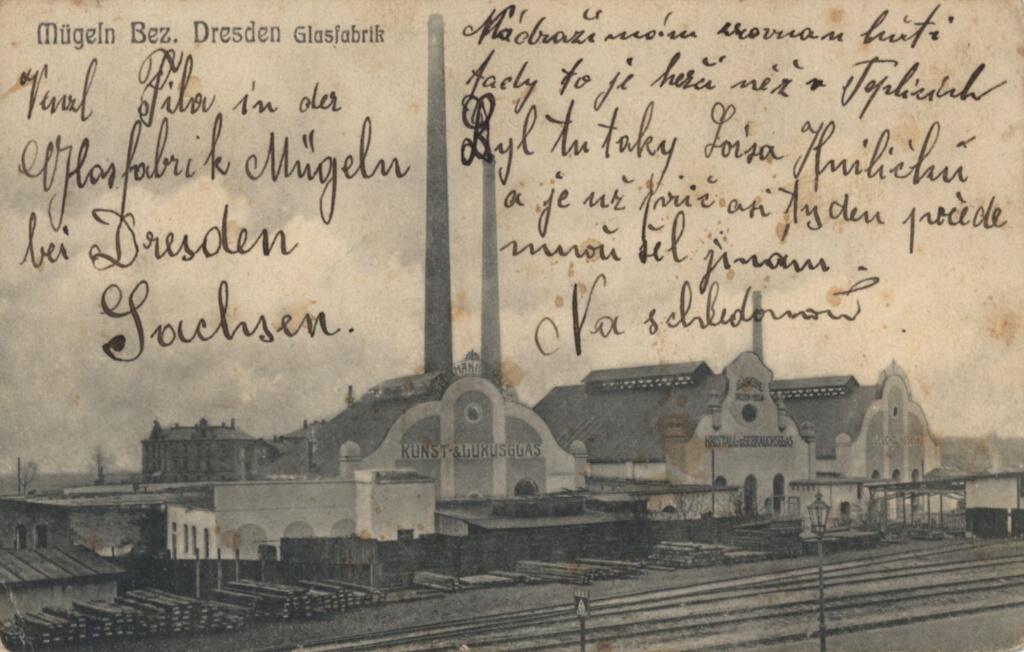 Mügeln Bez. Dresden Glasfabrik
Venzl Fila in der
Glasfabrik Mügeln
bei Dresden
Sachsen.
Nádraží mám zrovna u huti
tady to je herší něž v Teplicích
Byl tu taky Loisa Hniličků
a je už prič asi tyden počede
mnoú šel jinám.
Na schledanoú.
KUNST-&LUXUSGLAS
KRISTALL-&GEBRAUCHSGLAS